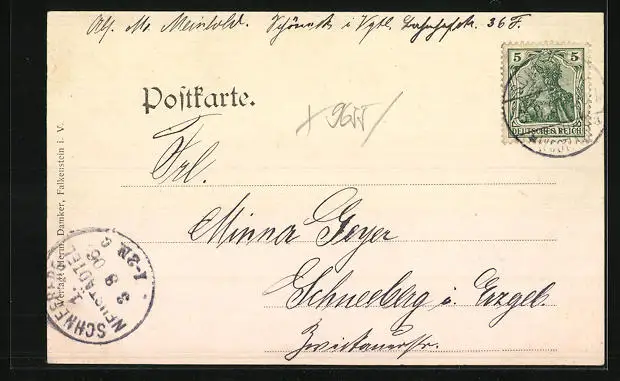 Abs. M. Meinhold. Schöneck i. Vgtl. Bahnhofstr. 36 F.
5 5
DEUTSCHES REICH
Postkarte.
+ 9655/
Frl.
Minna Geyer
Schneeberg i. Erzgeb.
Zwickauerstr.
Verlag: Herm. Damker, Falkenstein i. V.
SCHNEEBERG
NEUSTÄDTEL
1
3 8 05
1-2N